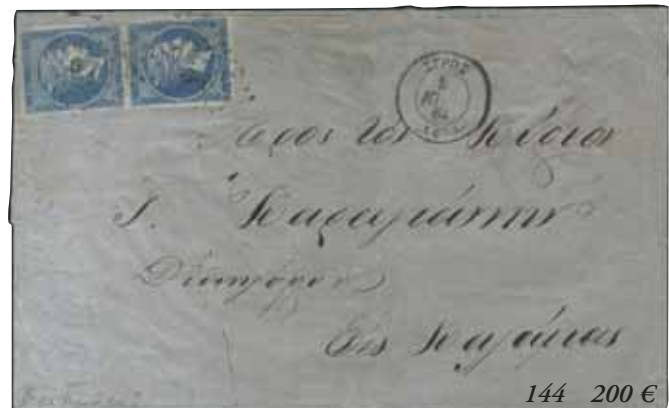 ΣΥΡΟΣ
64
Προς τον Κύριον
Ι. Καραγιάννην
Δικηγόρον
Εις Καλάμας
144 200 €